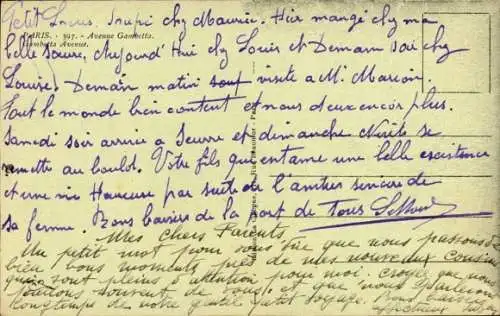 Petit Louis. Soupé chez Maurice. Hier mangé chez ma
PARIS. - 397. - Avenue Gambetta.
Gambetta Avenue.
belle sœur, Aujourd'hui chez Louis et Demain soir chez
Louise. Demain matin visite a Mr. Marion.
Tout le monde bien content et nous deux encor plus.
Samedi soir arrivée a Sèvre et dimanche se
remettre au boulot. Votre fils qui entame une belle existence
et une vie Heureuse par suite de l'amour sincère de
sa femme. Bons baisers de la part de Tous
Mes chers Parents
Un petit mot pour vous dire que nous passons de
bien bons moments près de mes nouveaux cousins
qui sont pleins d'attention pour moi. Croyez que nous
parlons souvent de vous et que nous parlerons
longtemps de notre gentil petit voyage. Bons baisers
affectueux